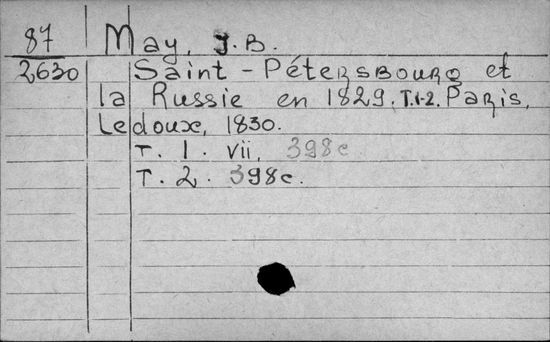 87 May, J.B.
2630 Saint-Pétersbourg et
la Russie en 1829. T.1-2. Paris,
Ledoux, 1830.
T. 1. vii, 398 c
T. 2. 398 c.